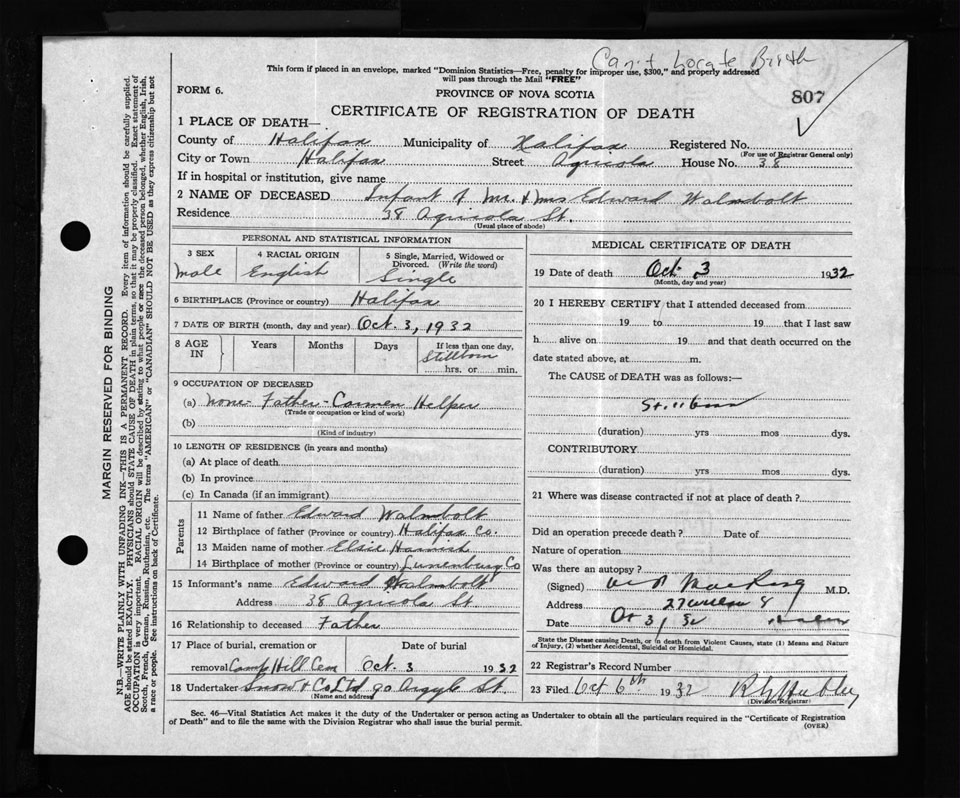 Can't Locate Birth
This form if placed in an envelope, marked "Dominion Statistics—Free, penalty for improper use, $300," and properly addressed
will pass through the Mail "FREE"
807
FORM 6.
PROVINCE OF NOVA SCOTIA
CERTIFICATE OF REGISTRATION OF DEATH
1 PLACE OF DEATH—
County of Halifax Municipality of Halifax Registered No.
(For use of Registrar General only)
City or Town Halifax Street Agricola House No. 38
If in hospital or institution, give name
2 NAME OF DECEASED Infant of Mr. & Mrs Edward Walmbolt
Residence 38 Agricola St.
(Usual place of abode)
PERSONAL AND STATISTICAL INFORMATION
3 SEX
male
4 RACIAL ORIGIN
English
5 Single, Married, Widowed or
Divorced. (Write the word)
Single
6 BIRTHPLACE (Province or country) Halifax
7 DATE OF BIRTH (month, day and year) Oct. 3, 1932
8 AGE
IN
Years
Months
Days
If less than one day,
Stillborn
hrs. or min.
9 OCCUPATION OF DECEASED
(a) none - Father - Carmen Helper
(Trade or occupation or kind of work)
(b)
(Kind of industry)
10 LENGTH OF RESIDENCE (in years and months)
(a) At place of death
(b) In province
(c) In Canada (if an immigrant)
Parents
11 Name of father Edward Walmbolt
12 Birthplace of father (Province or country) Halifax Co.
13 Maiden name of mother Elsie Harnish
14 Birthplace of mother (Province or country) Lunenburg Co
15 Informant's name Edward Walmbolt
Address 38 Agricola St
16 Relationship to deceased Father
17 Place of burial, cremation or
Date of burial
removal Camp Hill Cem Oct. 3 1932
18 Undertaker Snow & Co Ltd 90 Argyle St.
(Name and address)
MEDICAL CERTIFICATE OF DEATH
19 Date of death Oct 3 1932
(Month, day and year)
20 I HEREBY CERTIFY that I attended deceased from
19 to 19 that I last saw
h alive on 19 and that death occurred on the
date stated above, at m.
The CAUSE of DEATH was as follows:—
Stillborn
(duration) yrs mos dys.
CONTRIBUTORY
(duration) yrs mos dys.
21 Where was disease contracted if not at place of death?
Did an operation precede death? Date of
Nature of operation
Was there an autopsy?
(Signed) M.D.
Address 27
Date Oct 3/32
State the Disease causing Death, or in death from Violent Causes, state (1) Means and Nature
of Injury, (2) whether Accidental, Suicidal or Homicidal.
22 Registrar's Record Number
23 Filed Oct 6th 1932
(Division Registrar)
Sec. 46—Vital Statistics Act makes it the duty of the Undertaker or person acting as Undertaker to obtain all the particulars required in the "Certificate of Registration
of Death" and to file the same with the Division Registrar who shall issue the burial permit.
(OVER)
MARGIN RESERVED FOR BINDING
N.B.—WRITE PLAINLY WITH UNFADING INK—THIS IS A PERMANENT RECORD. Every item of information should be carefully supplied.
AGE should be stated EXACTLY. PHYSICIANS should STATE CAUSE OF DEATH in plain terms, so that it may be properly classified. Exact statement of
OCCUPATION is very important. RACIAL ORIGIN will be described by stating to what people or race the deceased person belonged, whether English, Irish,
Scotch, French, German, Russian, Ruthenian, etc. The terms "AMERICAN" or "CANADIAN" SHOULD NOT BE USED as they express citizenship but not
a race or people. See instructions on back of Certificate.